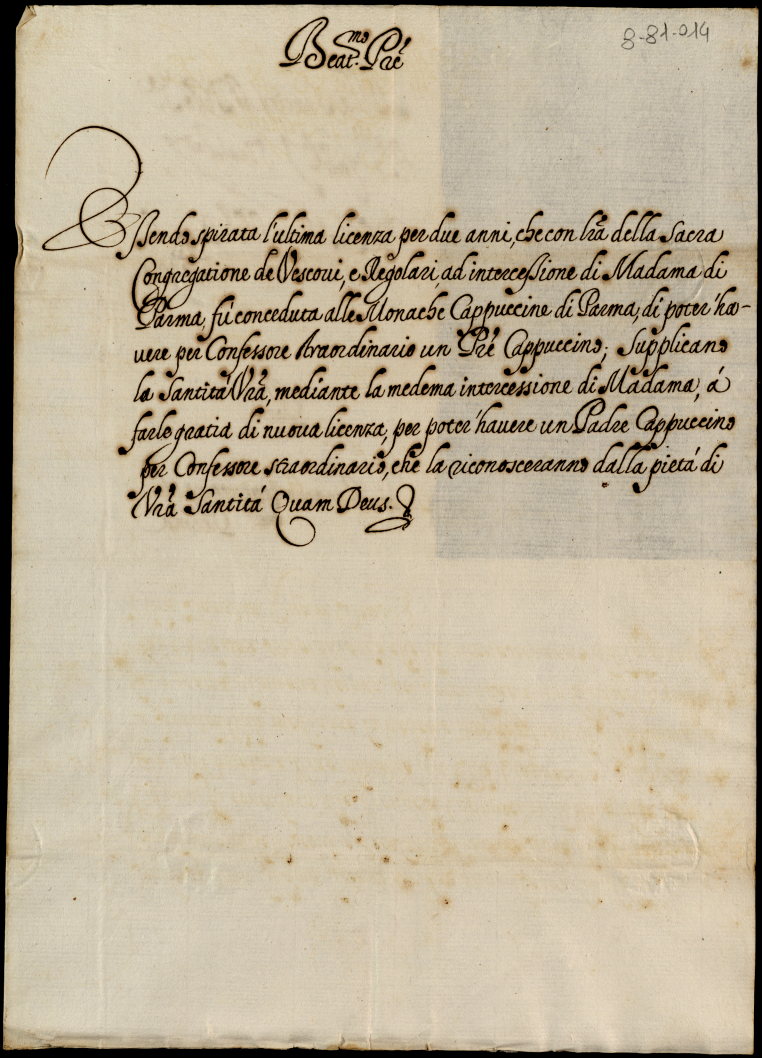 8-81-014
Beat.mo Pre
Essendo spirata l'ultima licenza per due anni, che con lra della Sacra
Congregatione de Vescovi, e Regolari, ad intercessione di Madama di
Parma, fù conceduta alle Monache Cappuccine di Parma, di poter ha-
uere per Confessore straordinario un Pre Cappuccino; Supplicano
la Santità Vra, mediante la medema intercessione di Madama, á
farle gratia di nuoua licenza, per poter hauere un Padre Cappuccino
per Confessore straordinario, che la riconosceranno dalla pietá di
Vra Santitá Quam Deus.